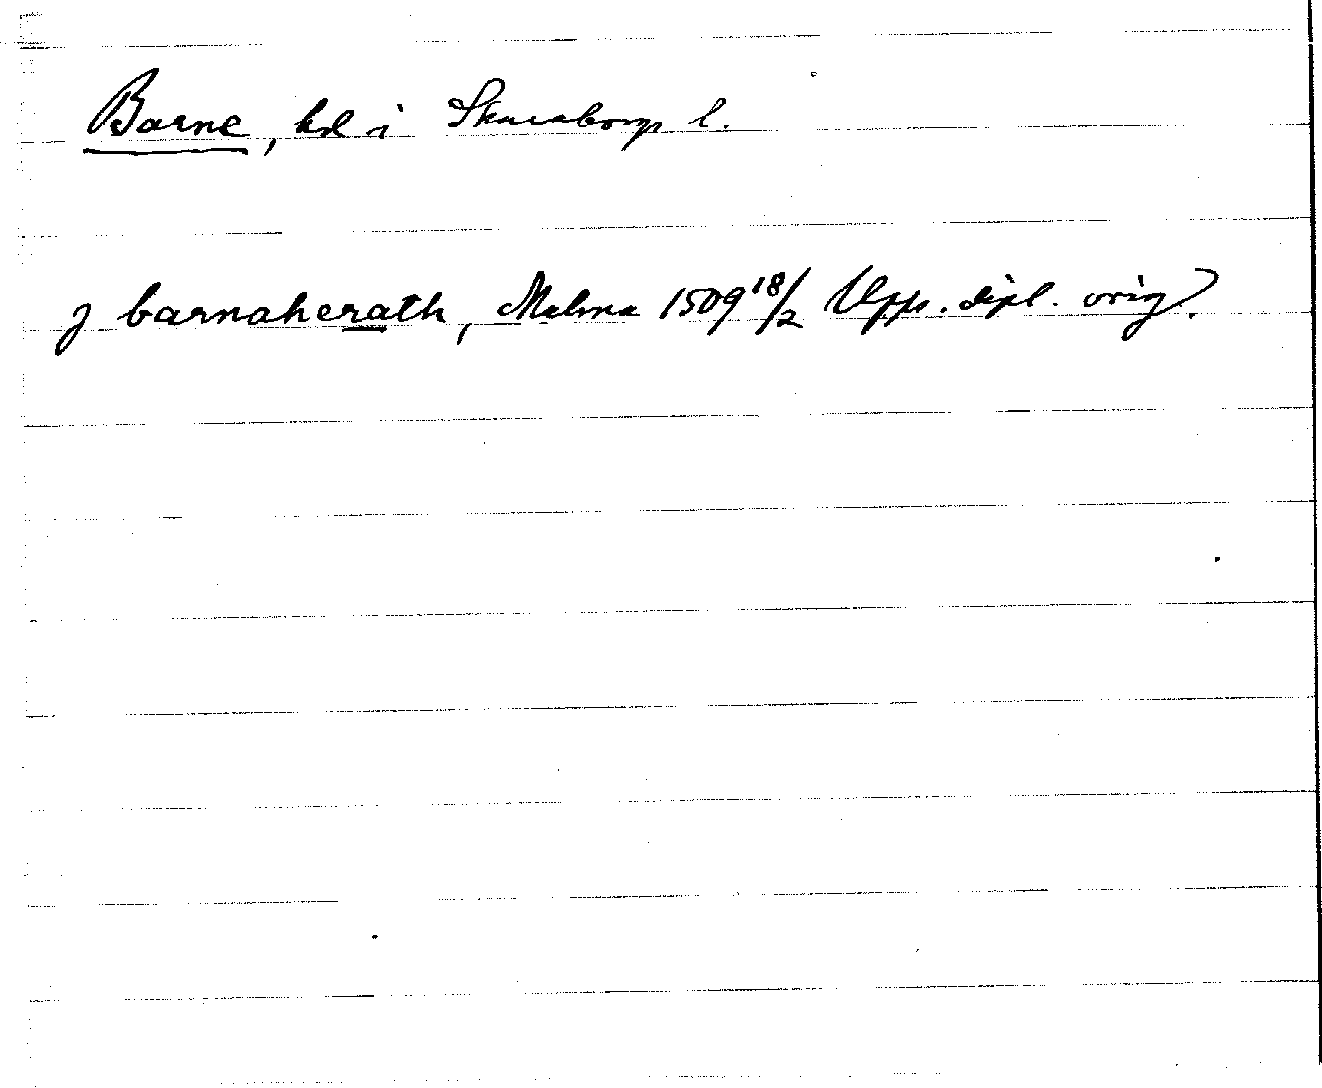 Barne, hd i Skaraborgs l.
j barnaherath, Malma 1509 18/2 Upps. dipl. orig?